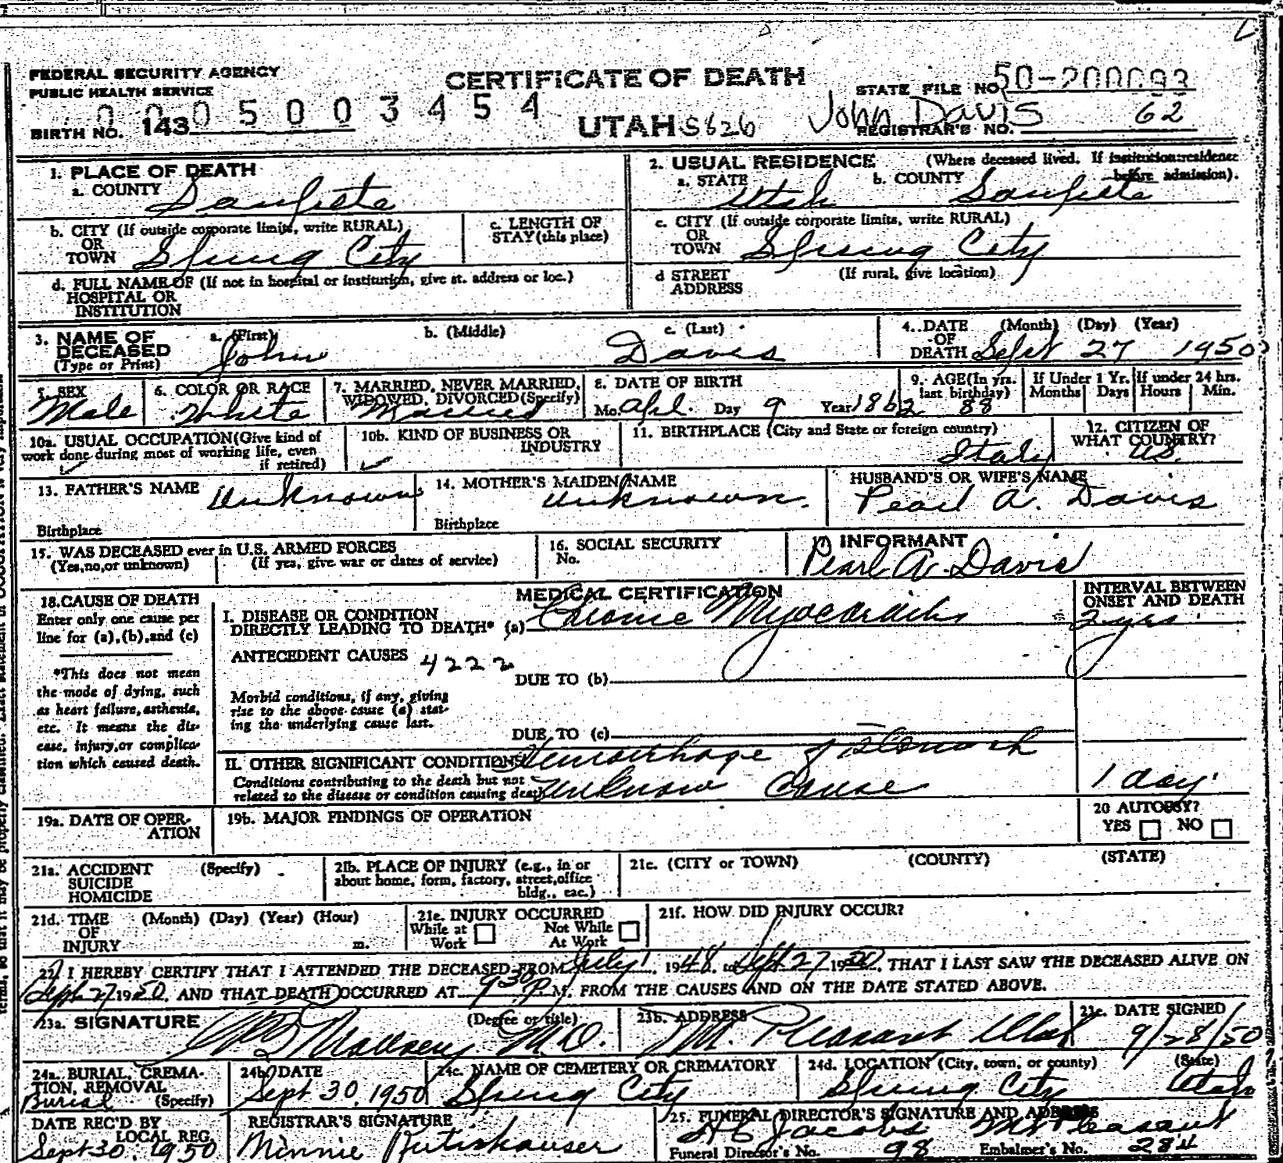 FEDERAL SECURITY AGENCY
PUBLIC HEALTH SERVICE
CERTIFICATE OF DEATH
STATE FILE NO. 50-200093
0005003454
BIRTH NO. 143
UTAH S626
John Davis
REGISTRAR'S NO. 62
1. PLACE OF DEATH
a. COUNTY Sanpete
2. USUAL RESIDENCE (Where deceased lived. If institution: residence before admission).
a. STATE Utah b. COUNTY Sanpete
b. CITY (If outside corporate limits, write RURAL) OR TOWN Spring City
c. LENGTH OF STAY (this place)
c. CITY (If outside corporate limits, write RURAL) OR TOWN Spring City
d. FULL NAME OF (If not in hospital or institution, give st. address or loc.) HOSPITAL OR INSTITUTION
d STREET ADDRESS (If rural, give location)
3. NAME OF DECEASED (Type or Print)
a. (First) John
b. (Middle)
c. (Last) Davis
4. DATE OF DEATH (Month) (Day) (Year) Sept 27 1950
5. SEX Male
6. COLOR OR RACE White
7. MARRIED, NEVER MARRIED, WIDOWED, DIVORCED (Specify) Married
8. DATE OF BIRTH Mo. Apl. Day 9 Year 1862
9. AGE (In yrs. last birthday) 88
If Under 1 Yr. Months Days
If under 24 hrs. Hours Min.
10a. USUAL OCCUPATION (Give kind of work done during most of working life, even if retired)
10b. KIND OF BUSINESS OR INDUSTRY
11. BIRTHPLACE (City and State or foreign country) Italy
12. CITIZEN OF WHAT COUNTRY? US.
13. FATHER'S NAME Unknown
Birthplace
14. MOTHER'S MAIDEN NAME Unknown.
Birthplace
HUSBAND'S OR WIFE'S NAME Pearl A. Davis
15. WAS DECEASED ever in U.S. ARMED FORCES (Yes, no, or unknown) (If yes, give war or dates of service)
16. SOCIAL SECURITY No.
17 INFORMANT Pearl A. Davis
18. CAUSE OF DEATH
Enter only one cause per line for (a), (b), and (c)
*This does not mean the mode of dying, such as heart failure, asthenia, etc. It means the disease, injury, or complication which caused death.
MEDICAL CERTIFICATION
INTERVAL BETWEEN ONSET AND DEATH
I. DISEASE OR CONDITION DIRECTLY LEADING TO DEATH* (a) Chronic Myocarditis 2 yrs.
ANTECEDENT CAUSES 4222
DUE TO (b)
Morbid conditions, if any, giving rise to the above cause (a) stating the underlying cause last.
DUE TO (c)
II. OTHER SIGNIFICANT CONDITIONS Hemorrhage of Stomach
Conditions contributing to the death but not related to the disease or condition causing death Unknow Cause 1 day
19a. DATE OF OPERATION
19b. MAJOR FINDINGS OF OPERATION
20 AUTOPSY? YES NO
21a. ACCIDENT SUICIDE HOMICIDE (Specify)
21b. PLACE OF INJURY (e.g., in or about home, form, factory, street, office bldg., eac.)
21c. (CITY or TOWN) (COUNTY) (STATE)
21d. TIME OF INJURY (Month) (Day) (Year) (Hour) m.
21e. INJURY OCCURRED While at Work Not While At Work
21f. HOW DID INJURY OCCUR?
22. I HEREBY CERTIFY THAT I ATTENDED THE DECEASED FROM July 1, 1948, to Sept 27 1950, THAT I LAST SAW THE DECEASED ALIVE ON
Sept 27 1950, AND THAT DEATH OCCURRED AT 9 30 P. M. FROM THE CAUSES AND ON THE DATE STATED ABOVE.
23a. SIGNATURE (Degree or title) M.D.
23b. ADDRESS Mt. Pleasant Utah
23c. DATE SIGNED 9/28/50
24a. BURIAL, CREMATION, REMOVAL (Specify) Burial
24b. DATE Sept 30, 1950
24c. NAME OF CEMETERY OR CREMATORY Spring City
24d. LOCATION (City, town, or county) (State) Spring City Utah
DATE REC'D BY LOCAL REG. Sept 30, 1950
REGISTRAR'S SIGNATURE Minnie Rutishauser
25. FUNERAL DIRECTOR'S SIGNATURE AND ADDRESS H C Jacobs Mt Pleasant
Funeral Director's No. 98 Embalmer's No. 284